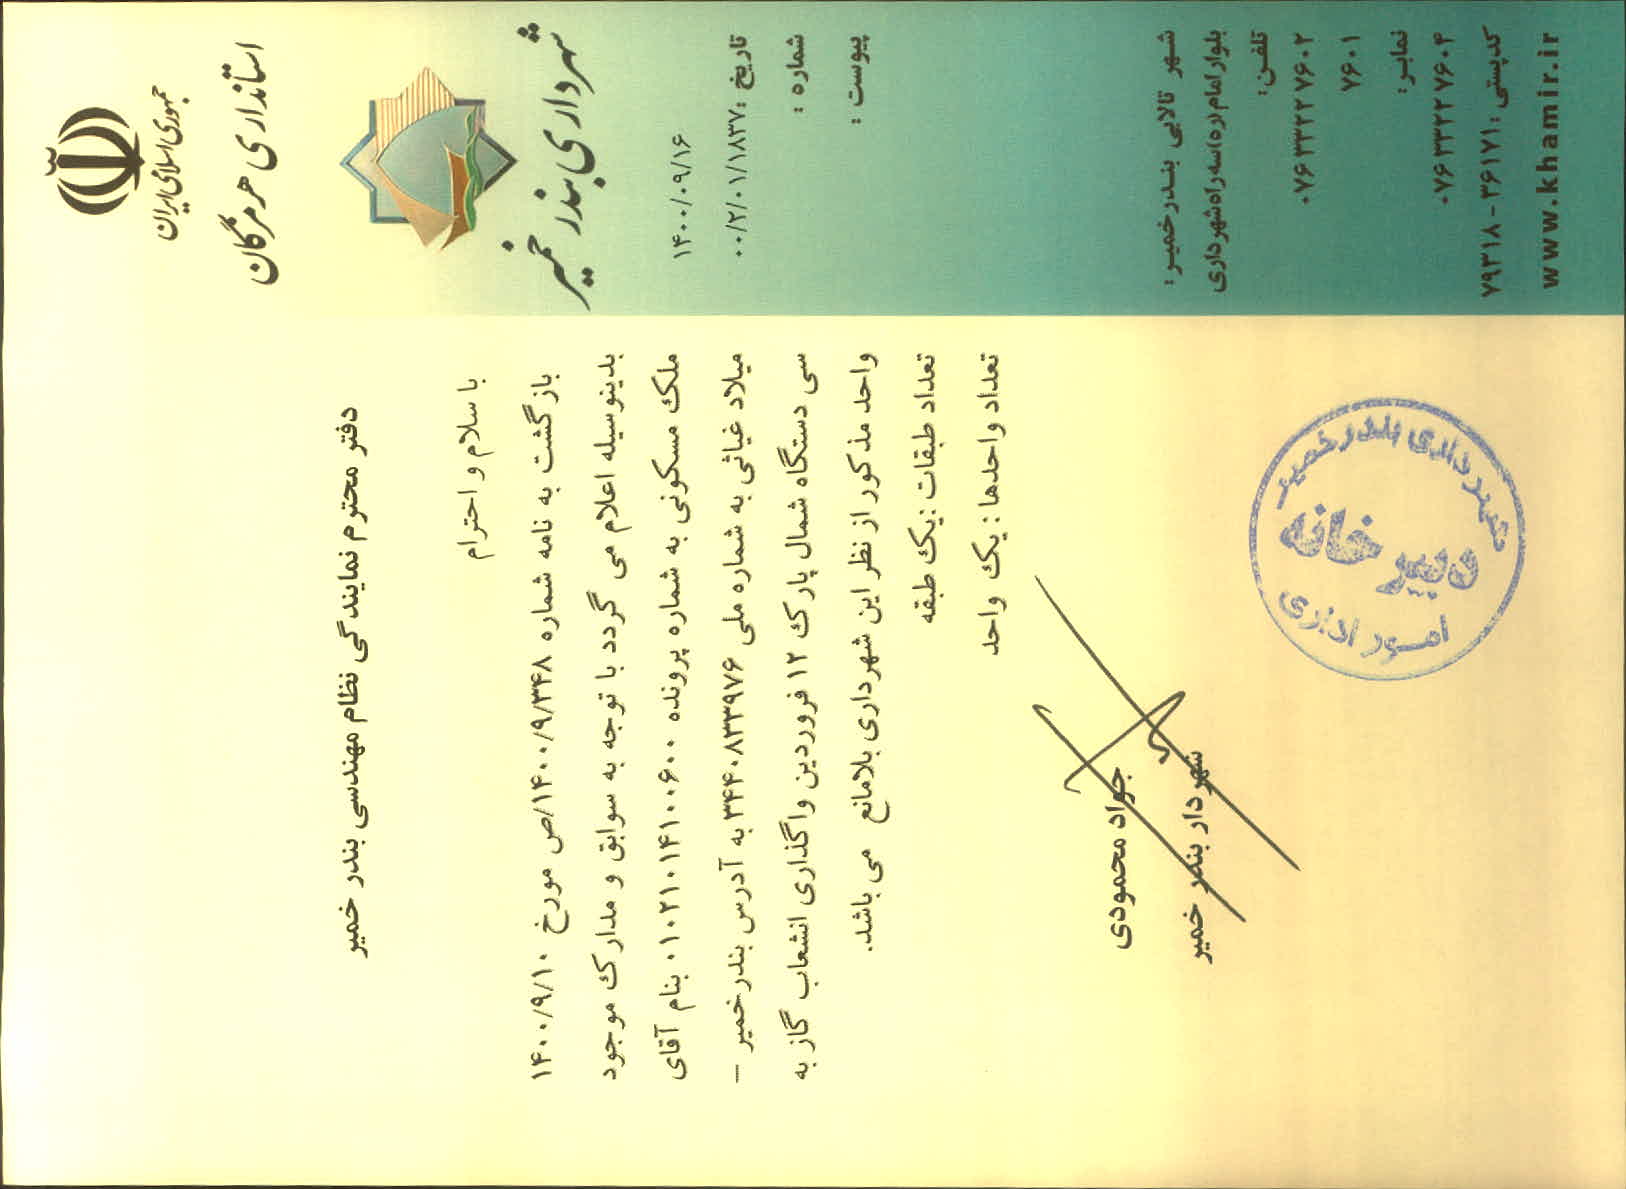 جمهوری اسلامی ایران
استانداری هرمزگان
شهرداری بندر خمیر
۱۴۰۰/۰۹/۱۶
تاریخ :۰۰/۲/۰۱/۱۸۳۷
شماره :
پیوست :
دفتر محترم نمایندگی نظام مهندسی بندر خمیر
با سلام و احترام
بازگشت به نامه شماره ۱۴۰۰/۹/۳۴۸/ص مورخ ۱۴۰۰/۹/۱۰
بدینوسیله اعلام می گردد با توجه به سوابق و مدارک موجود
ملک مسکونی به شماره پرونده ۰۱۰۲۱۰۱۴۱۰۰۶۰۰ بنام آقای
میلاد غیاثی به شماره ملی ۳۴۴۰۸۳۳۹۷۶ به آدرس بندرخمیر –
سی دستگاه شمال پارک ۱۲ فروردین واگذاری انشعاب گاز به
واحد مذکور از نظر این شهرداری بلامانع می باشد.
تعداد طبقات :یک طبقه
تعداد واحدها : یک واحد
جواد محمودی
شهردار بندر خمیر
شهرداری بندرخمیر
دبیرخانه
امور اداری
شهر تالابی بندرخمیر :
بلوار امام ره/سه راه شهرداری
تلفن:
۰۷۶۳۳۲۲۷۶۰۲
۷۶۰۱
نمابر:
۰۷۶۳۳۲۲۷۶۰۴
کدپستی :۳۶۱۷۱-۷۹۳۱۸
www.khamir.ir